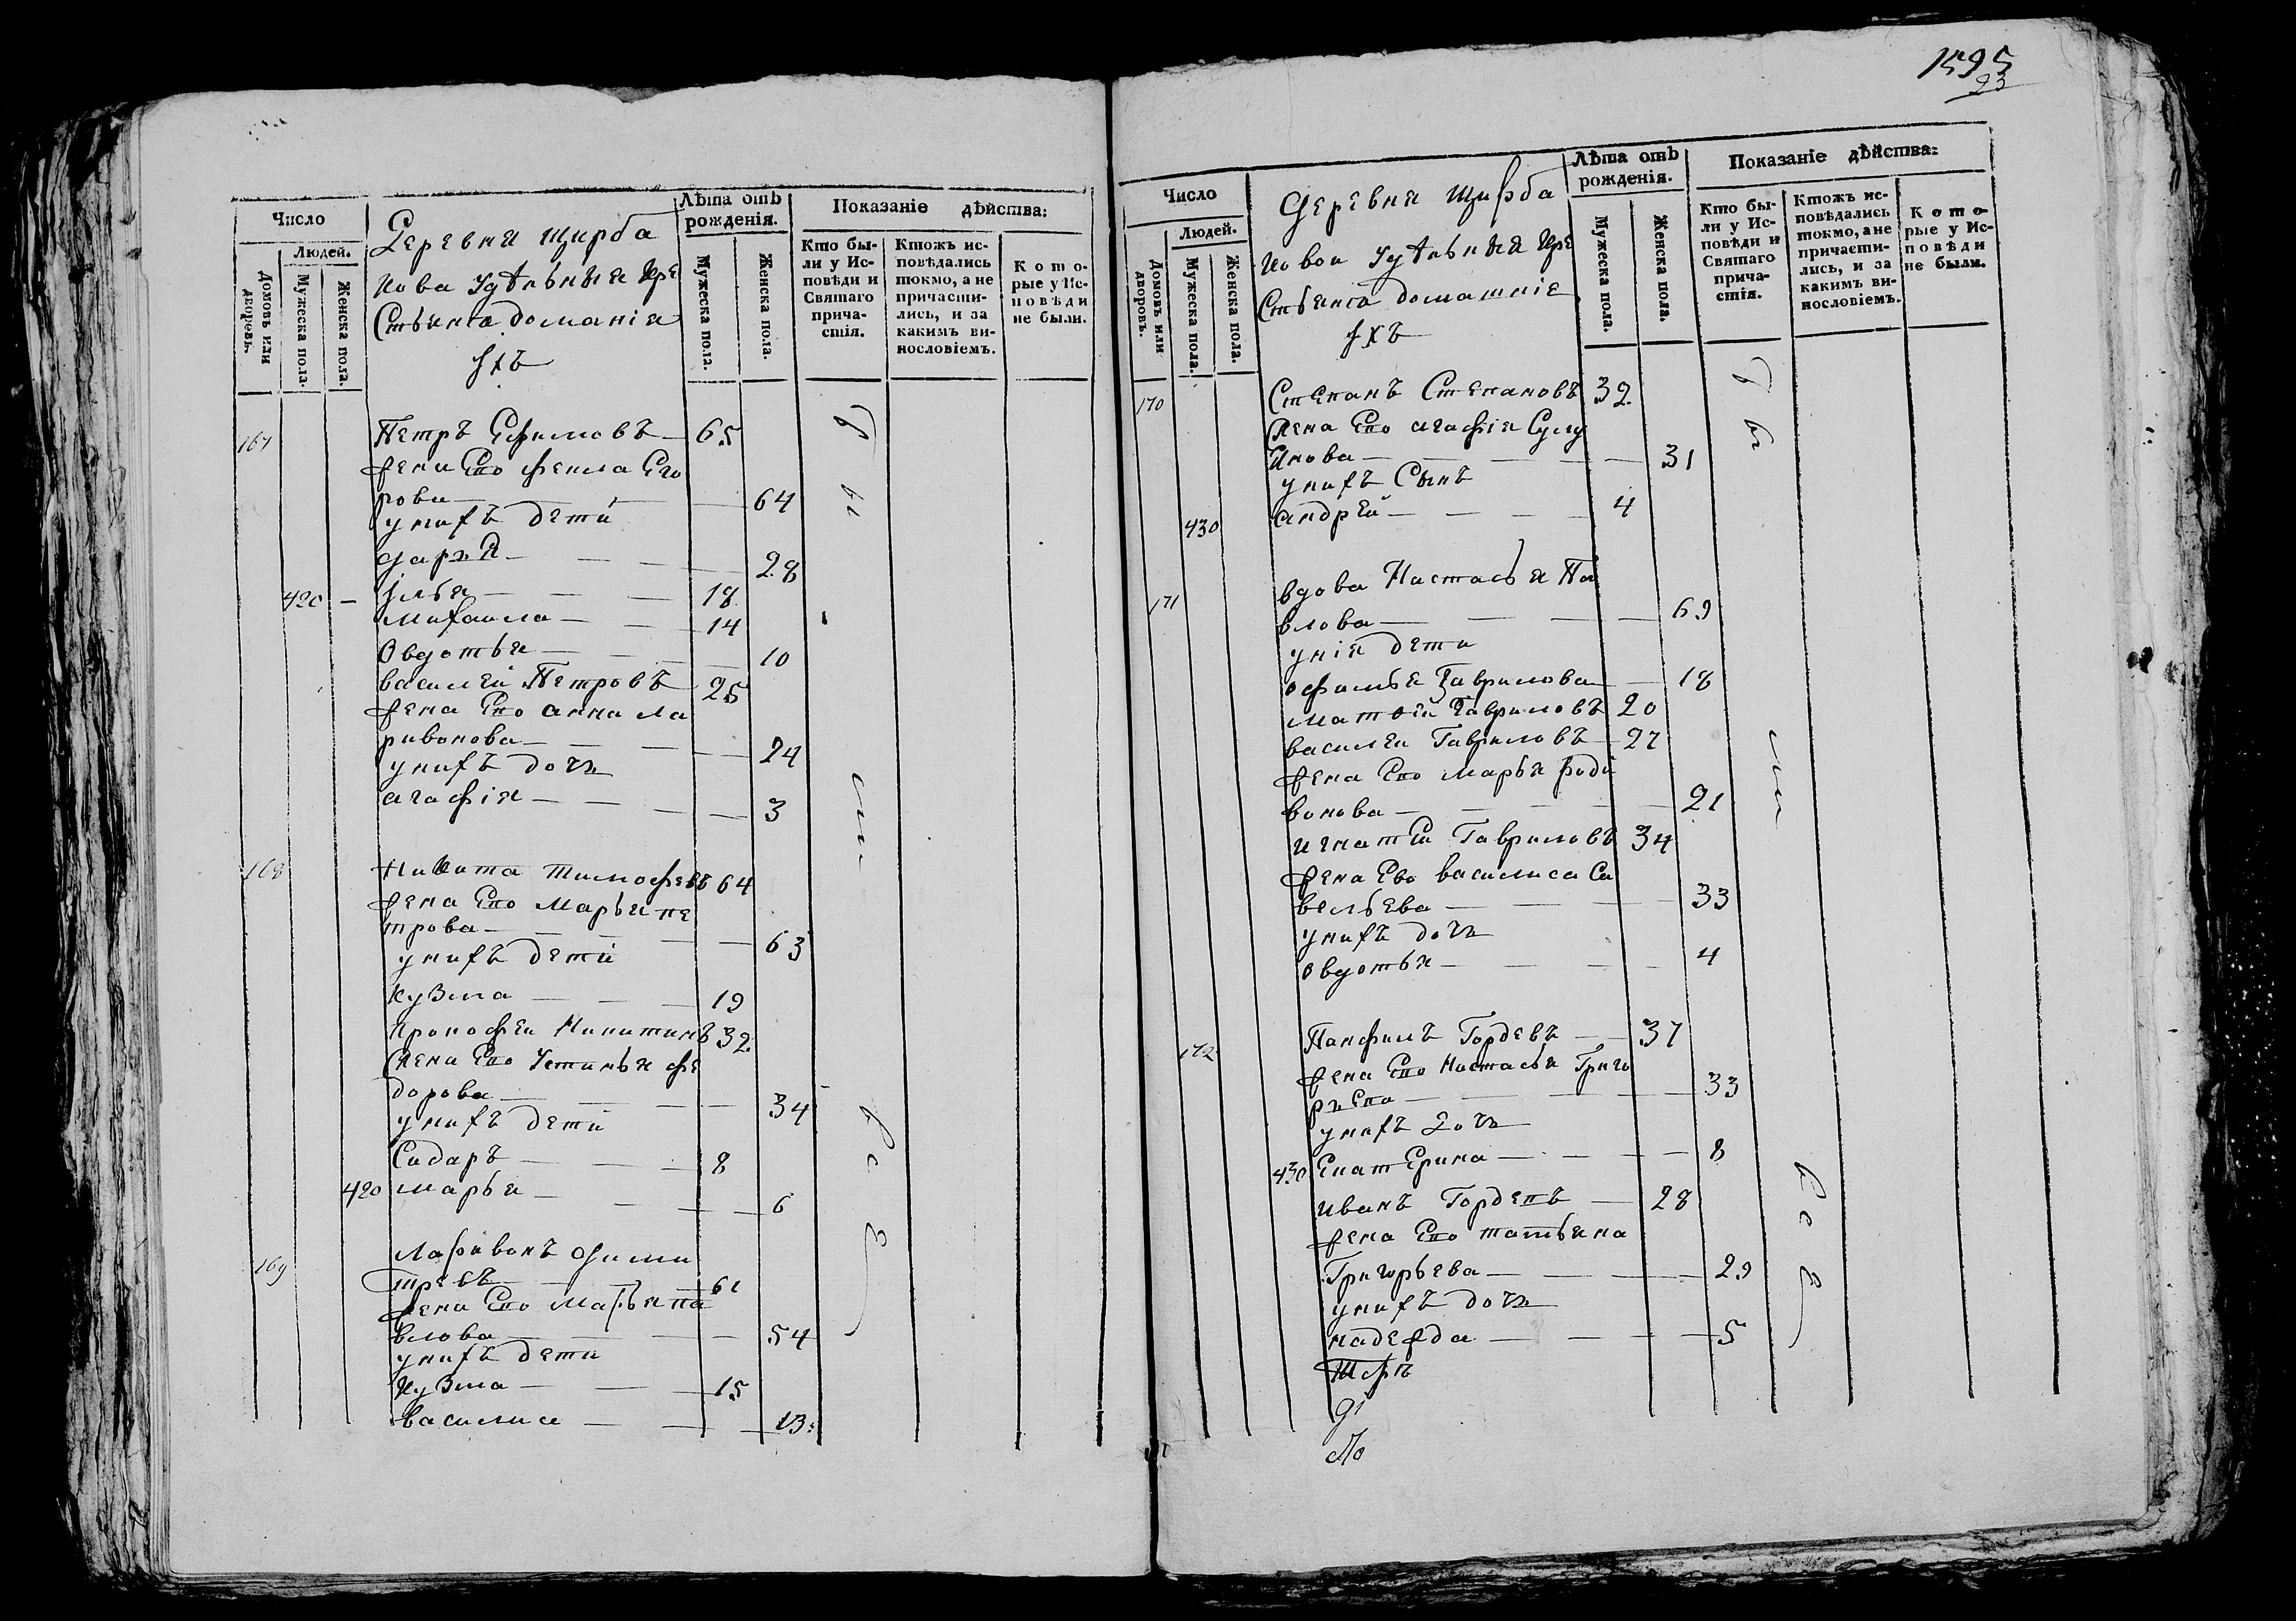 1595
23
Число
Людей.
Домовъ или дворовъ.
Мужеска пола.
Женска пола.
Деревня Щирба
кова Удѣльныя кре
стьяня домашніе
ихъ
Лѣта отъ рожденія.
Мужеска пола.
Женска пола.
Показаніе дѣйства:
Кто бы-
ли у Ис-
повѣди и
Святаго
прича-
стія.
Ктожъ ис-
повѣдались
токмо, а не
причасти-
лись, и за
какимъ ви-
нословіемъ.
К о т о-
рые у Ис-
п о в ѣ д и
не были.
167 Петръ Ефимовъ 65
жена Его Фекла Его
рова 64
у нихъ дети
Дарья 28
420 Илья 18
Михаила 14
Овдотья 10
Василей Петровъ 25
жена Его Анна Ла
ривонова 24
у нихъ дочь
Агафія 3
168 Никита Тимофевъ 64
жена Его Марья Пе
трова 63
у нихъ дети
Кузма 19
Прокофей Никитинъ 32
жена Его Устинья Фе
дорова 34
у нихъ дети
Сидаръ 8
420 Марья 6
169 Ларивонъ Дими
тревъ 61
жена Его Марья Па
влова 54
у нихъ дети
Кузма 15
Василиса 13
Число
Людей.
Домовъ или дворовъ.
Мужеска пола.
Женска пола.
Деревня Щирба
кова Удѣльныя кре
стьяня домашніе
ихъ
Лѣта отъ рожденія.
Мужеска пола.
Женска пола.
Показаніе дѣйства:
Кто бы-
ли у Ис-
повѣди и
Святаго
прича-
стія.
Ктожъ ис-
повѣдались
токмо, а не
причасти-
лись, и за
какимъ ви-
нословіемъ.
К о т о-
рые у Ис-
п о в ѣ д и
не были.
170 Степанъ Степановъ 32
жена Его Агафія
31
у нихъ Сынъ
430 Андрей 4
171 вдова Настасья Па
влова 69
у нія дети
Офимья Гаврилова 18
Матвѣй Гавриловъ 20
Василей Гавриловъ 27
жена Его Марья Роди
вонова 21
Игнатей Гавриловъ 34
жена Ево Василиса Са
вельева 33
у нихъ дочь
Овдотья 4
172 Панфилъ Гордевъ 37
жена Его Настасья Григо
рьева 33
у нихъ дочь
430 Екатерина 8
Иванъ Гордевъ 28
жена Его Татьяна
Григорьева 29
у нихъ дочь
Надежда 5